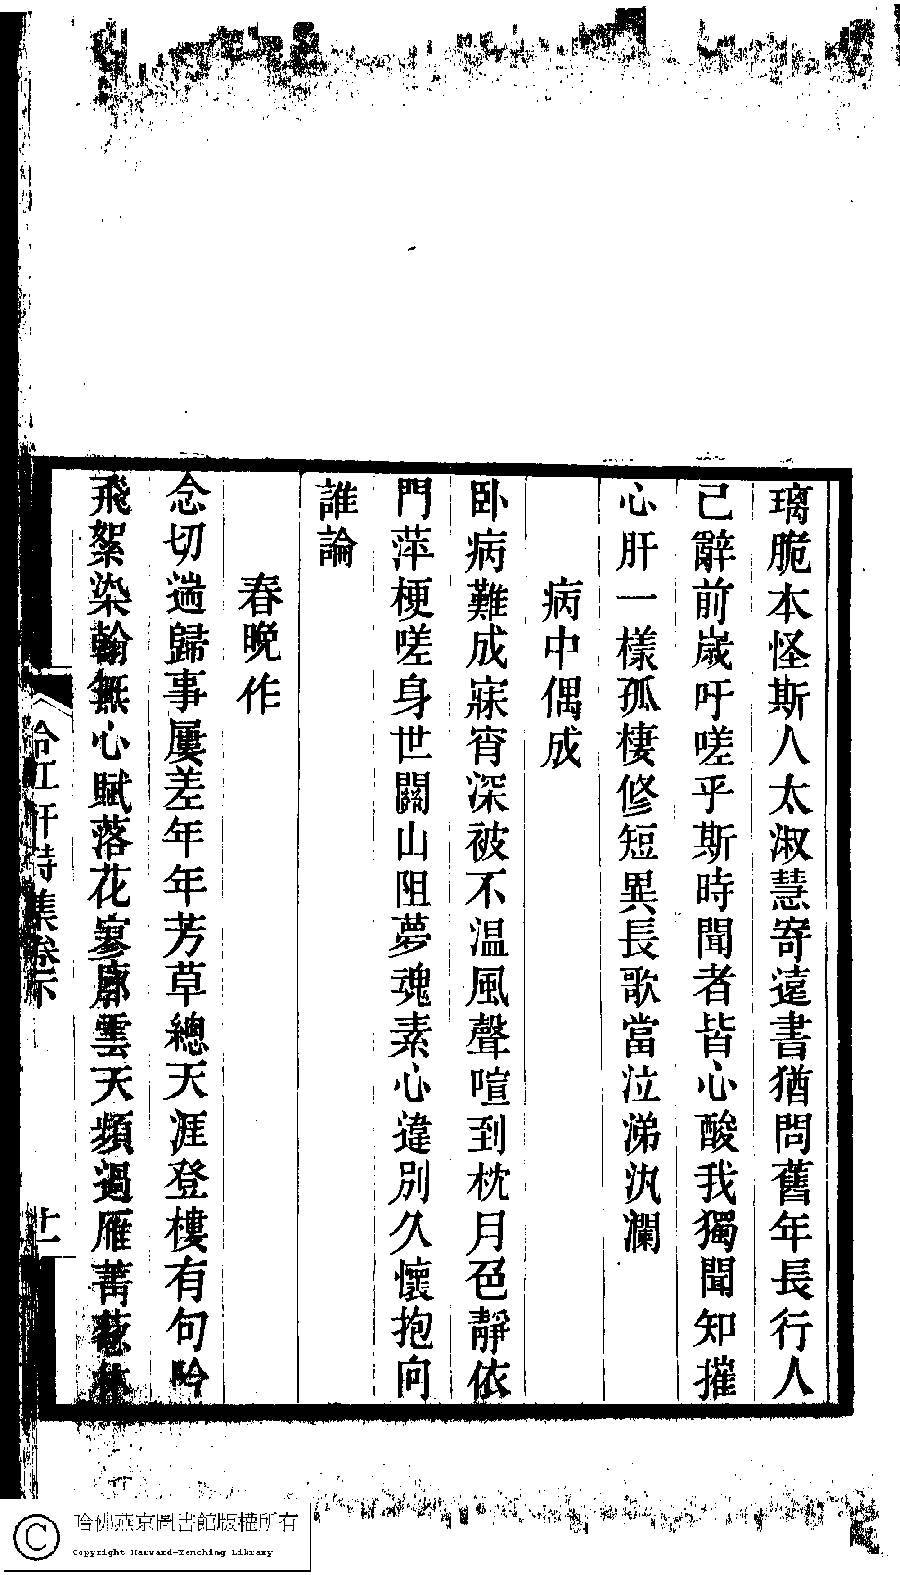 璃脆本怪斯人太淑慧寄遠書猶問舊年長行人
已辭前歲吁嗟乎斯時聞者皆心酸我獨聞知摧
心肝一樣孤棲修短異長歌當泣涕汍瀾
病中偶成
卧病難成寐宵深被不温風聲喧到枕月色靜依
門萍梗嗟身世關山阻夢魂素心違別久懷抱向
誰論
春晚作
念切遄歸事屢差年年芳草總天涯登樓有句吟
飛絮染翰無心賦落花寥廓雲天頻過雁菁葱
冷紅軒詩集卷下
十一
哈佛燕京圖書館版權所有
Copyright Harvard-Yenching Library